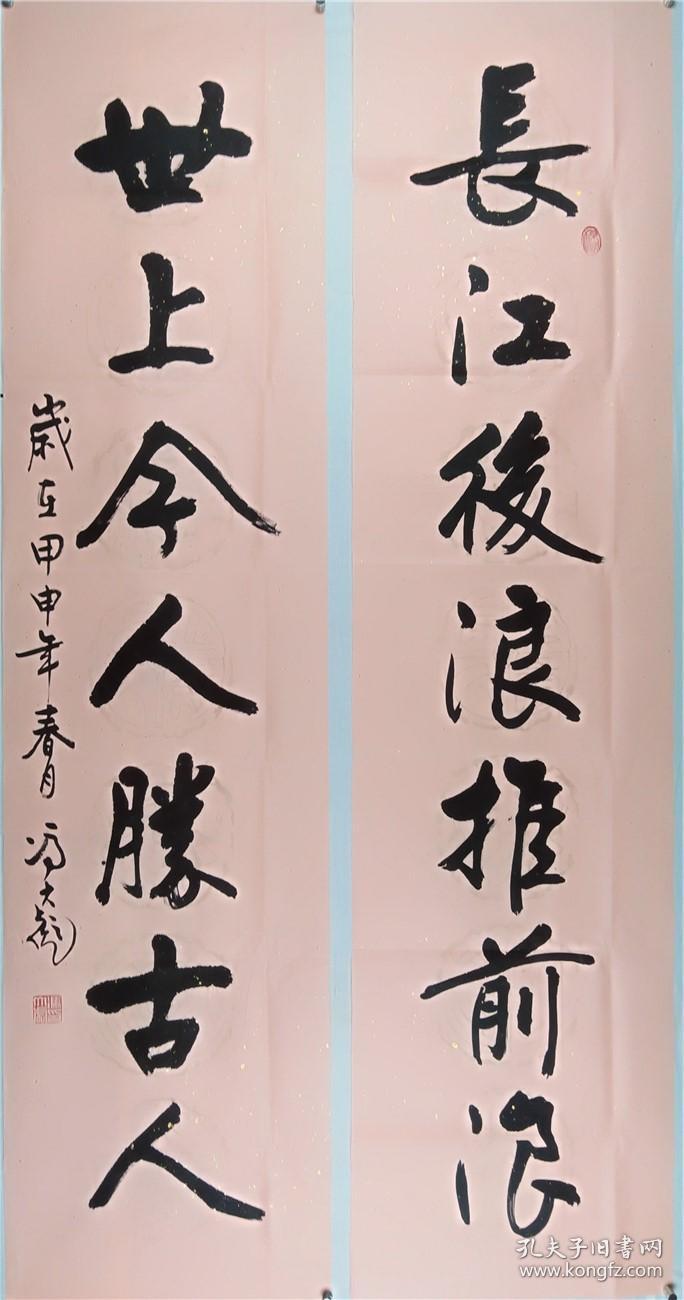 長江後浪推前浪
世上今人勝古人
歲在甲申年春月 馮大彪
孔夫子旧書网
www.kongfz.com